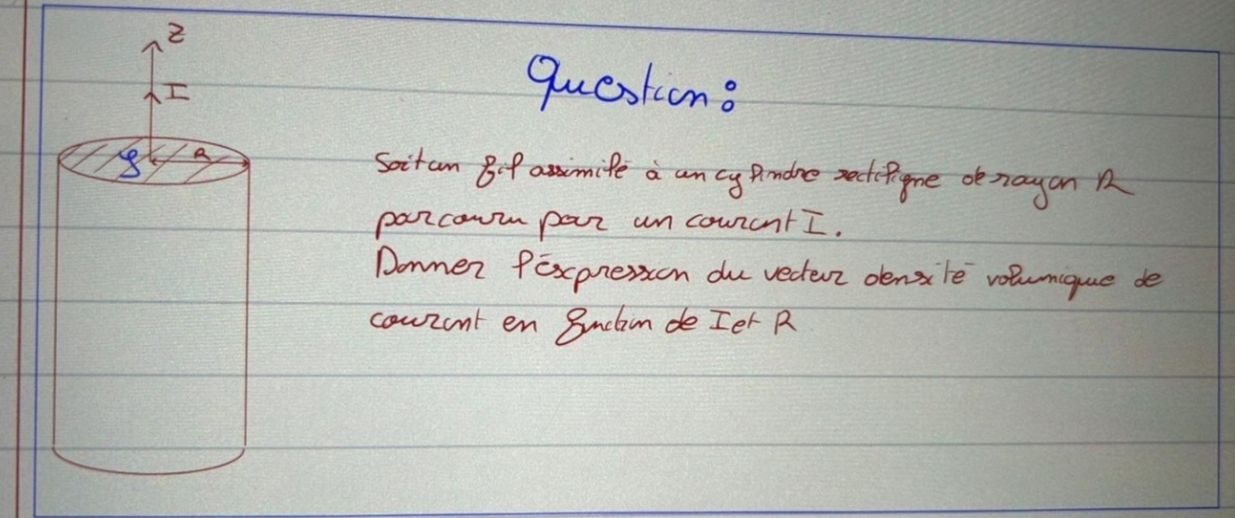 Z
I
S
R
Question :
Soit un fil assimilé à un cylindre rectiligne de rayon R
parcouru par un courant I.
Donner l'éxpression du vecteur densité volumique de
courant en fonction de I et R